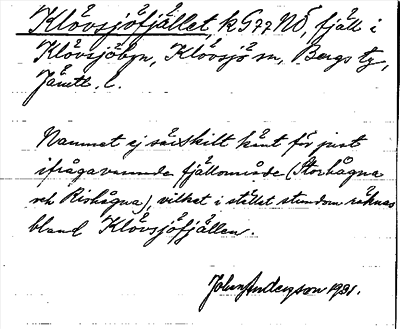 Klövsjöfjället, k G77NÖ, fjäll i
Klövsjöbyn, Klövsjö sn, Bergs tg,
Jämtl. l.
Namnet ej särskilt känt för just
ifrågavarande fjällområde (Storhågna
och Rishågna), vilket i stället stundom räknas
bland Klövsjöfjällen.
John Anderzon 1931.